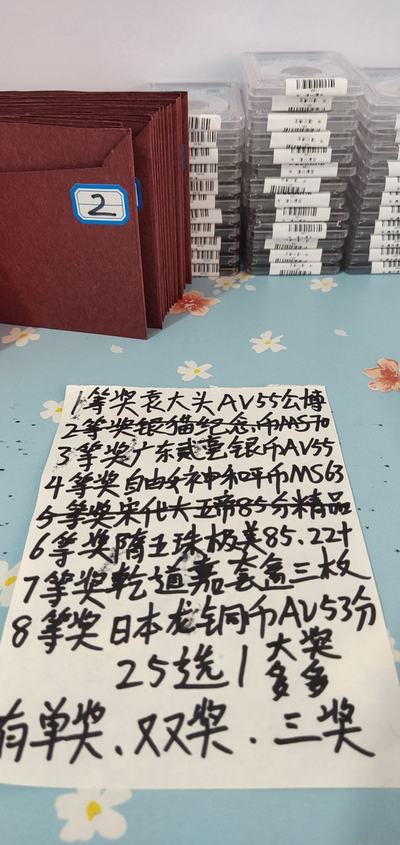 2
1等奖袁大头AV55公博
2等奖银猫纪念币MS70
3等奖广东贰毫银币AV55
4等奖自由女神和平币MS63
5等奖宋代大五帝85分精品
6等奖隋五珠极美85.22+
7等奖乾道嘉套盒三枚
8等奖日本龙铜币AV53分
25选1 大奖
多多
有单奖、双奖.三奖